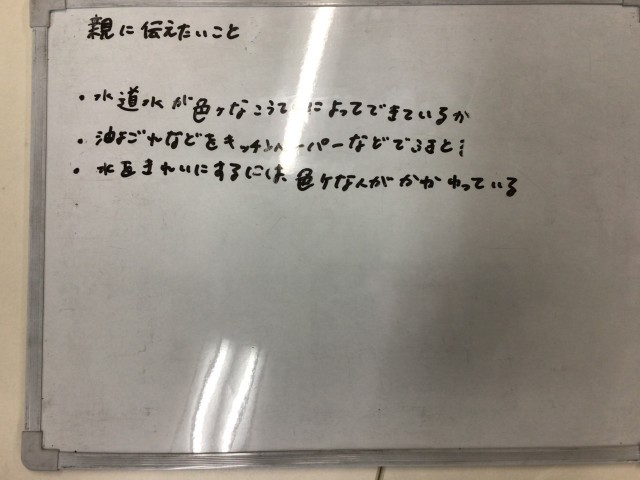 親に伝えたいこと
・水道水が色々なこうていによってできているか
・油よごれなどをキッチンペーパーなどでふきとる
・水をきれいにするには色々な人がかかわっている